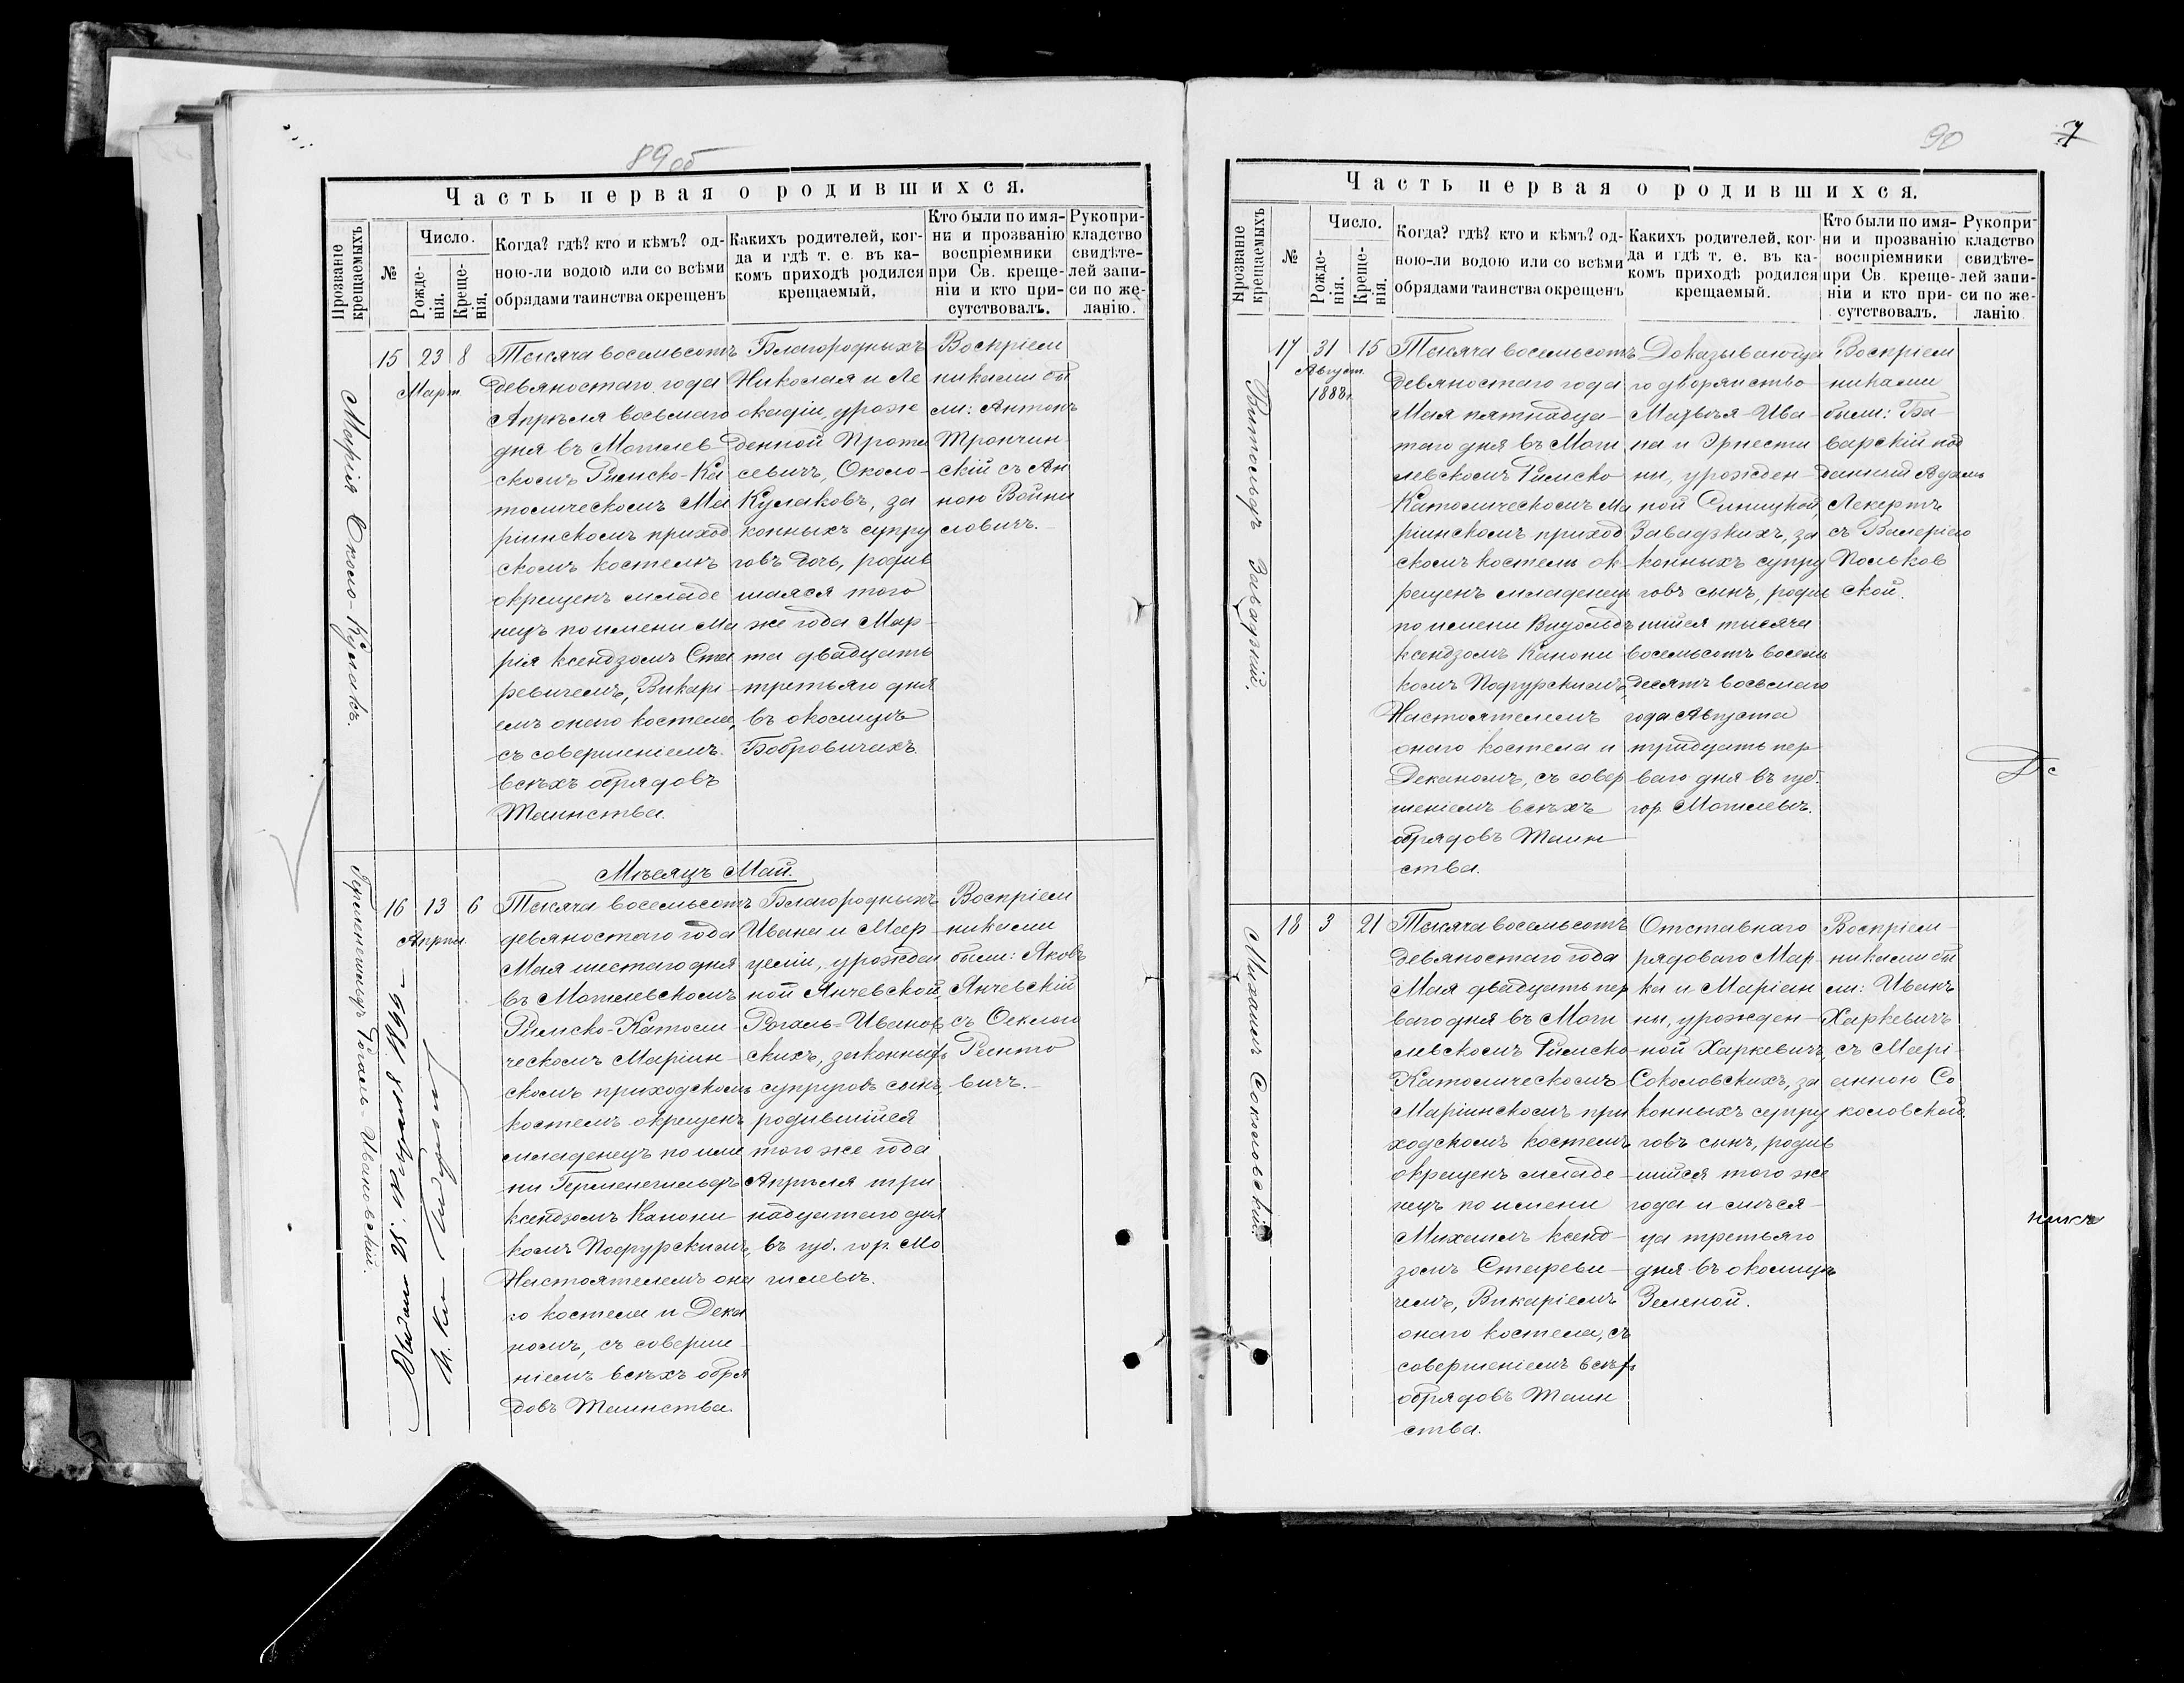 89 об
Часть первая о родившихся.
Прозваніе крещаемыхъ
№
Число.
Рожде-
нія.
Креще-
нія.
Когда? гдѣ? кто и кѣмъ? од-
ною-ли водою или со всѣми
обрядами таинства окрещенъ
Какихъ родителей, ког-
да и гдѣ т. е. въ ка-
комъ приходѣ родился
крещаемый.
Кто были по имя-
ни и прозванію
воспріемники
при Св. креще-
ніи и кто при-
сутствовалъ.
Рукопри-
кладство
свидѣте-
лей запи-
си по же-
ланію.
Марія Около-Кулакъ.
15
23
Март
8
Тысяча восемьсотъ
девяностаго года
Апрѣля восьмаго
дня въ Могилев
скомъ Римско-Ка
толическомъ Ма
ріинскомъ приход
скомъ костелѣ
окрещенъ младе
нецъ по имени Ма
рія ксендзомъ Ста
ревичемъ, Викарі-
емъ онаго костела,
съ совершеніемъ
всѣхъ обрядовъ
Таинства.
Благородныхъ
Николая и Ле
окадіи, урож
денной Прота
севичъ, Около-
Кулаковъ, за
конныхъ супру
говъ дочь, родив
шаяся того
же года Мар-
та двадцать
третьяго дня
въ околицѣ
Бобровичахъ
Воспріем
никами бы
ли: Антонъ
Трончин
скій съ Ан
ною Войни
ловичъ.
Мѣсяцъ Май.
Герменегильдъ Рогаль-Ивановскій.
16
13
Апрѣл.
6
Тысяча восемьсотъ
девяностаго года
Мая шестаго дня
въ Могилевскомъ
Римско-Католи
ческомъ Маріин-
скомъ приходскомъ
костелѣ окрещенъ
младенецъ по име
ни Герменегильдъ
ксендзомъ Канони
комъ Подгурскимъ,
Настоятелемъ она
го костела и Дека
номъ, съ соверше-
ніемъ всѣхъ обря
довъ Таинства.
Благородныхъ
Ивана и Мар-
целіи, урожден
ной Янчевской,
Рогаль-Иванов
скихъ, законныхъ
супруговъ сынъ,
родившійся
того же года
Апрѣля три
надцатаго дня
въ губ. гор. Мо
гилевѣ.
Воспріем
никами
были: Яковъ
Янчевскій
съ Феклою
вичъ.
90
7
Часть первая о родившихся.
Прозваніе крещаемыхъ
№
Число.
Рожде-
нія.
Креще-
нія.
Когда? гдѣ? кто и кѣмъ? од-
ною-ли водою или со всѣми
обрядами таинства окрещенъ
Какихъ родителей, ког-
да и гдѣ т. е. въ ка-
комъ приходѣ родился
крещаемый.
Кто были по имя-
ни и прозванію
воспріемники
при Св. креще-
ніи и кто при-
сутствовалъ.
Рукопри-
кладство
свидѣте-
лей запи-
си по же-
ланію
Витольдъ Завадзкій.
17
31
Август
1888 г.
15
Тысяча восемьсотъ
девяностаго года
Мая пятнадца-
таго дня въ Моги
левскомъ Римско
Католическомъ Ма
ріинскомъ приход
скомъ костелѣ ок-
рещенъ младенецъ
по имени Витольдъ
ксендзомъ Канони
комъ Подгурскимъ,
Настоятелемъ
онаго костела и
Деканомъ, съ совер
шеніемъ всѣхъ
обрядовъ Таин
ства.
Доказывающа
го дворянство
Матвѣя-Ива-
на и Эрнести
ны, урожден-
ной Синицкой,
Завадзкихъ, за
конныхъ супру
говъ сынъ, роди
вшійся тысяча
восемьсотъ восемь
десятъ восьмаго
года Августа
тридцать пер
ваго дня въ губ.
гор. Могилевѣ.
Воспріем
никами
были: Ба-
варскій под
данный Адамъ
Лекертъ
съ Валеріею
Польков
ской.
Михаилъ Соколовскій
18
3
21
Тысяча восемьсотъ
девяностаго года
Мая двадцать пер
ваго дня въ Моги
левскомъ Римско-
Католическомъ
Маріинскомъ при
ходскомъ костелѣ
окрещенъ младе-
нецъ по имени
Михаилъ ксенд-
зомъ Стареви-
чемъ, Викаріемъ
онаго костела, съ
совершеніемъ всѣхъ
обрядовъ Таин
ства.
Отставнаго
рядоваго Мар-
ка и Маріан
ны, урожден-
ной Харкевичъ,
Соколовскихъ, за
конныхъ супру
говъ сынъ, родив
шійся того же
года и мѣся-
ца третьяго
дня въ околицѣ
Зеленой.
Воспріем-
никами бы
ли: Иванъ
Харкевичъ
съ Марі-
анною Со
коловской.